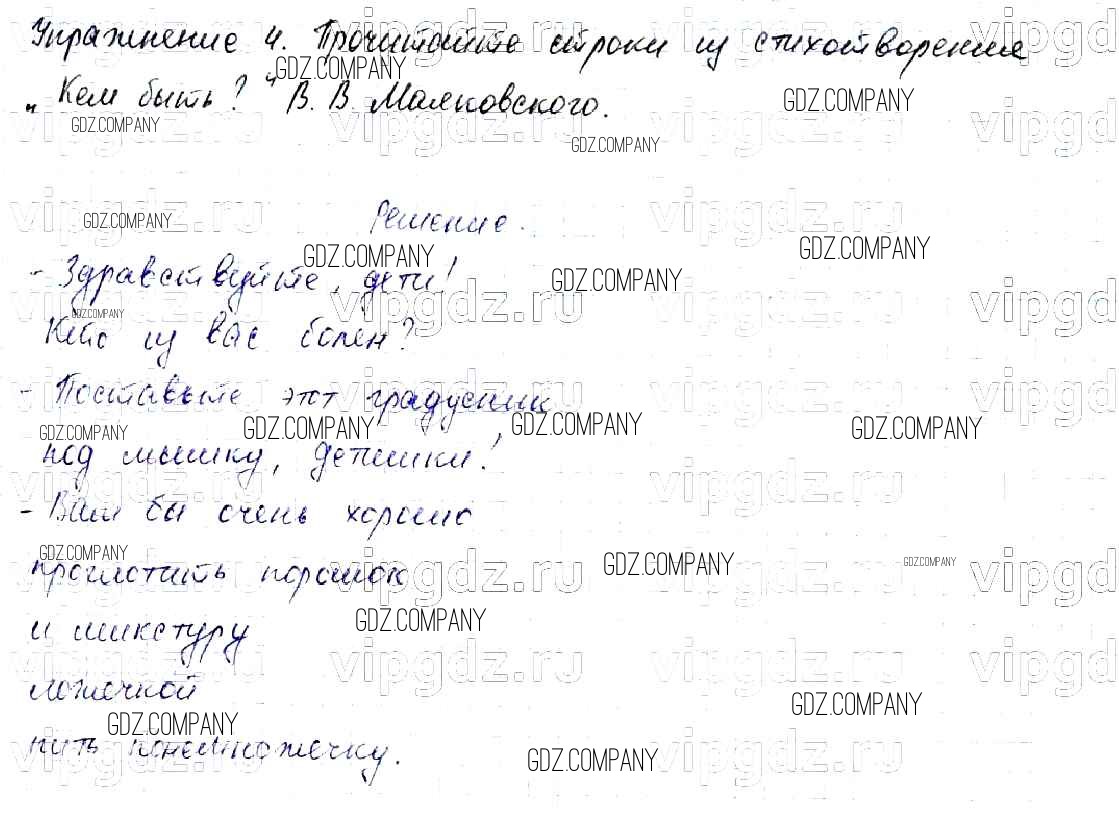 Упражнение 4. Прочитайте строки из стихотворения
„Кем быть?" В. В. Маяковского.
Решение.
- Здравствуйте, дети!
Кто из вас болен?
- Поставьте этот градусник
под мышку, детишки!
- Вам бы очень хорошо
проглотить порошок
и микстуру
ложечкой
пить понемножечку.
GDZ.COMPANY
vipgdz.ru